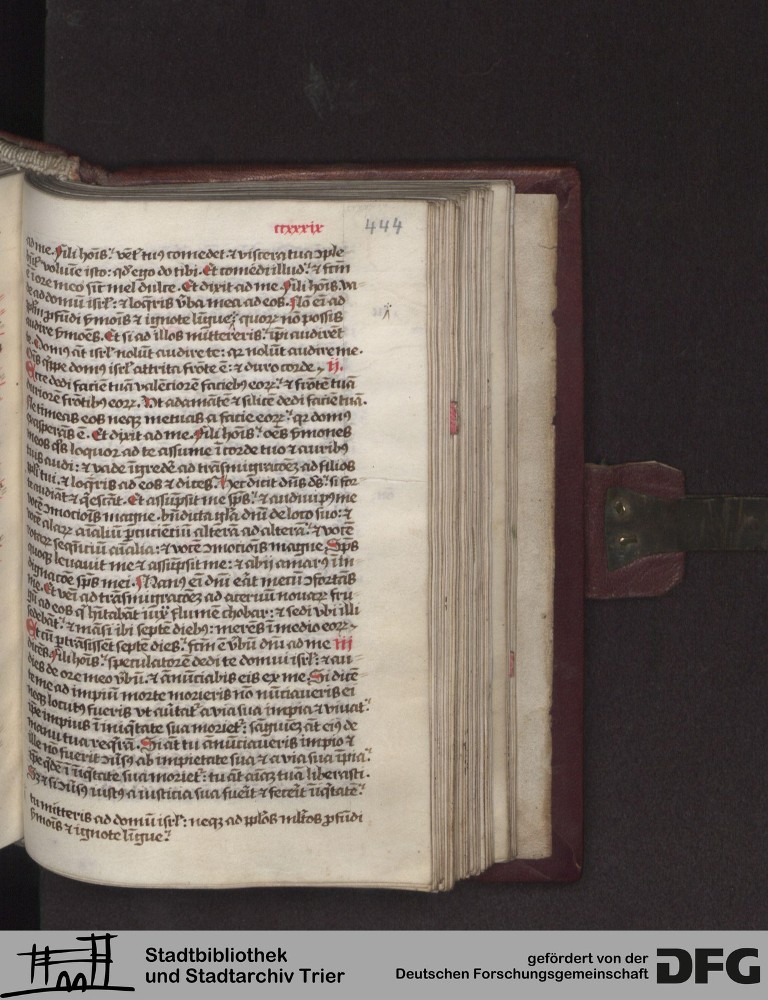 ccxxxix
444
ad me. Fili hoīs: vēt' tuꝰ comedet ⁊ viscera tua ↄple
volūīe isto: qd' ego do tibi. Et comedi illud: ⁊ fc̄m
ē ī ore meo sic̄ mel dulce. Et dixit ad me. Fili hoīs va
de ad domū isrl': ⁊ loq̄ris v̄ba mea ad eos. Nō eī ad
pfūdi s̄mois ⁊ ignote līgue: quoꝝ nō possis
audire s̄moēs. Et si ad illos mittereris: ipi audirēt
te. Domꝰ āt isrl' nolūt audire te: qꝛ nolūt audire me.
Oīs q̄ppe domꝰ isrl' attrita frōte ē: ⁊ duro corde. ij.
Ecce dedi faciē tuā valēciorē faciebꝰ eoꝝ: ⁊ frōtē tuā
duriorē frōtibꝰ eoꝝ. Vt adamātē ⁊ silicē dedi faciē tuā.
Ne timeas eos neqꝫ metuas a facie eoꝝ: qꝛ domꝰ
exasperās ē. Et dixit ad me. Fili hoīs: oēs s̄mones
meos q̄s loquor ad te assume ī corde tuo ⁊ auribꝰ
tuis audi: ⁊ vade īgredē ad trāsmigracōeꝫ ad filios
ppl'i tui. ⁊ loq̄ris ad eos ⁊ dices. Hec dicit dn̄s ds̄: si for
te audiāt ⁊ q̄escāt. Et assūpsit me sps̄: ⁊ audiui pꝰ me
vocē ↄmociois magne. bn̄dicta gl'a dn̄i de loco suo: ⁊
vocē alaꝝ aīaliū ꝑcuciētiū alterā ad alterā: ⁊ vocē
rotaꝝ seq̄ntiū aīalia: ⁊ vocē ↄmociois magne. Sps̄
quoqꝫ leuauit me ⁊ assūpsit me: ⁊ abij amarꝰ ī īn
dignacōe sps̄ mei. Manꝰ eī dn̄i erāt mecū ↄfortās
me. Et veni ad trāsmigracōeꝫ ad aceruū nouaꝝ fru
gū ad eos q̄ h̄itabāt iux̄ flumē chobar: ⁊ sedi vbi illi
sedebāt: ⁊ māsi ibi septē diebꝰ: merēs ī medio eoꝝ.
Et cū ꝑtrāsissēt septē dies: fc̄m ē v̄bū dn̄i ad me iij
dicēs. Fili hoīs: speculatorē dedi te domui isrl': ⁊ au
dies de ore meo v̄bū: ⁊ ānūciabis eis ex me. Si dicē
te me ad impiū morte morieris nō nūciaueris ei
neqꝫ locutꝰ fueris vt au̓tat' a via sua impia ⁊ viuat:
ipe impius ī iniq̄tate sua moriet': sāguīeꝫ āt eiꝰ de
manu tua req̄rā. Si āt tu ānūciaueris impio ⁊
ille nō fuerit ↄu̓sꝰ ab impietate sua ⁊ a via sua īpia:
ipe qdē ī iniq̄tate sua moriet': tu āt aīaꝫ tuā liberasti.
Sꝫ ⁊ si ↄu̓sꝰ iustꝰ a iusticia sua fuerit ⁊ fecerit iniq̄tatē:
tu mitteris ad domū isrl': neqꝫ ad ppl'os ml'tos pfūdi
s̄mois ⁊ ignote līgue:
Stadtbibliothek
und Stadtarchiv Trier
gefördert von der
Deutschen Forschungsgemeinschaft
DFG